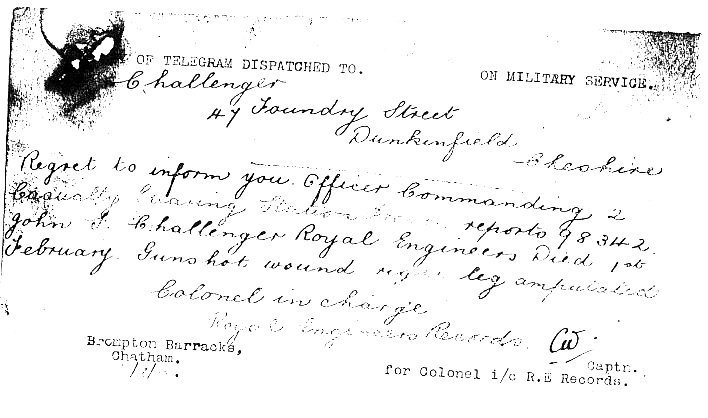 OF TELEGRAM DISPATCHED TO.
ON MILITARY SERVICE.
Challenger
47 Foundry Street
Dunkinfield
Cheshire
Regret to inform you Officer Commanding 2
Casualty Clearing Station reports 98342
John J. Challenger Royal Engineers Died 1st
February Gunshot wound right leg amputated
Colonel in charge
Royal Engineers Records.
Brompton Barracks,
Chatham.
Captn.
for Colonel i/c R.E Records.